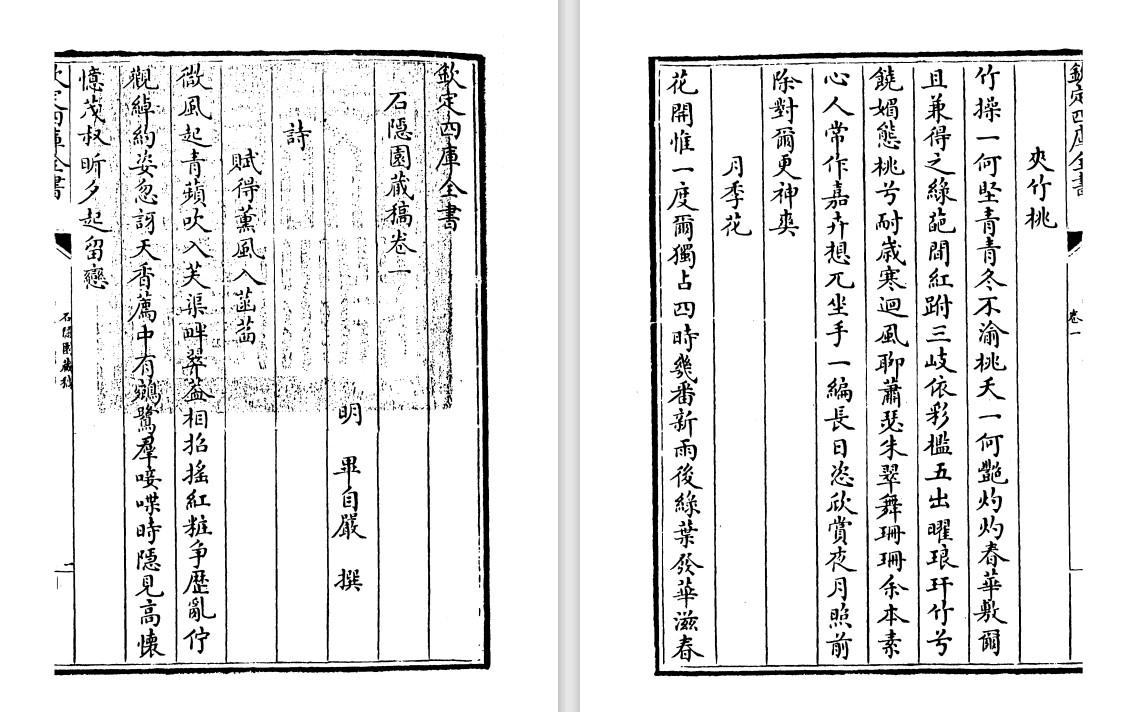 欽定四庫全書
石隱園藏稿卷一
明 畢自嚴 撰
詩
賦得薰風入菡萏
微風起青蘋吹入芙渠畔翠葢相招搖紅粧争歷亂佇
觀綽約姿忽訝天香薦中有鵷鷺羣唼喋時隱見高懷
憶茂叔昕夕起留戀
欽定四庫全書
石隱園藏稿
一
欽定四庫全書
卷一
夾竹桃
竹操一何堅青青冬不渝桃夭一何豔灼灼春華敷爾
且兼得之綠葩間紅跗三岐依彩檻五出曜琅玕竹兮
饒媚態桃兮耐歲寒迴風聊蕭瑟朱翠舞珊珊余本素
心人常作嘉卉想兀坐手一編長日恣欣賞夜月照前
除對爾更神爽
月季花
花開惟一度爾獨占四時幾番新雨後綠葉發華滋春